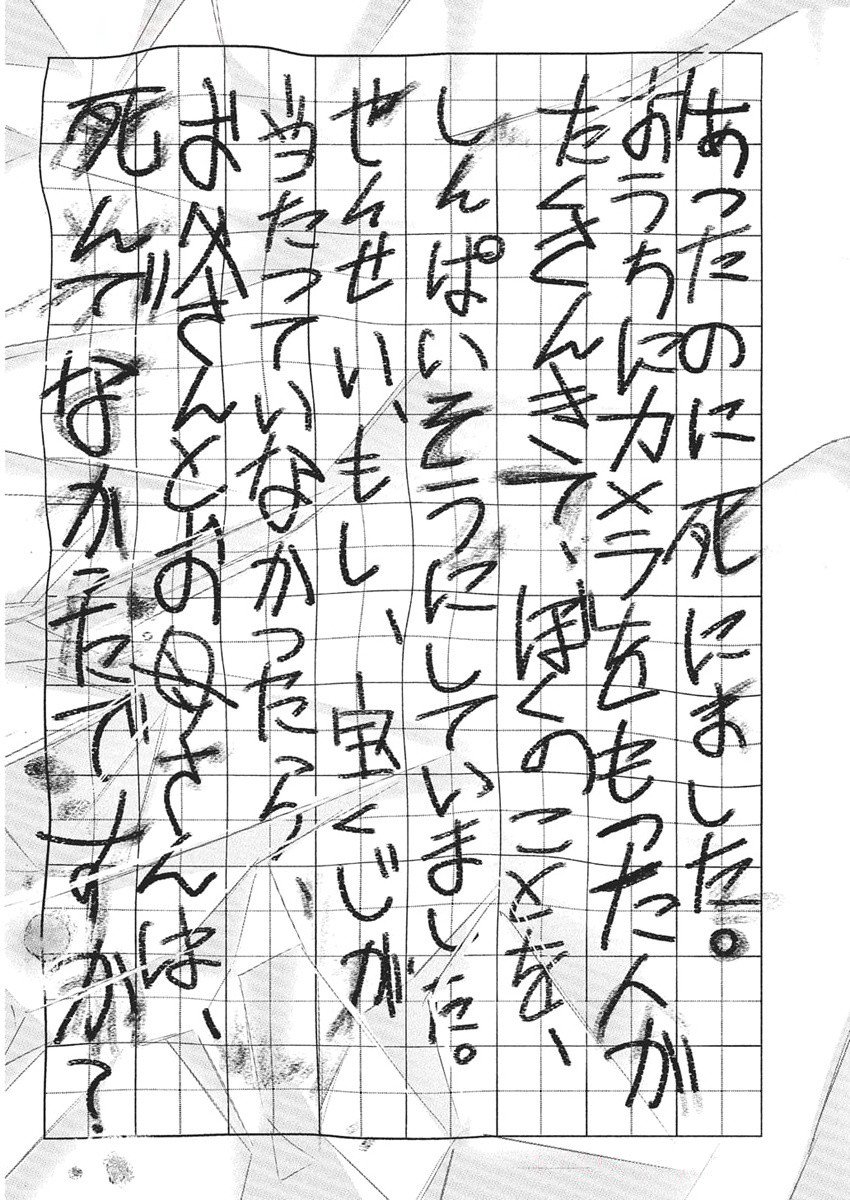 あったのに死にました。
おうちにカメラをもった人が
たくさんきて、ぼくのことを、
しんぱいそうにしていました。
せんせい、もし、宝くじが
当たっていなかったら、
お父さんとお母さんは、
死んでなかったですか？